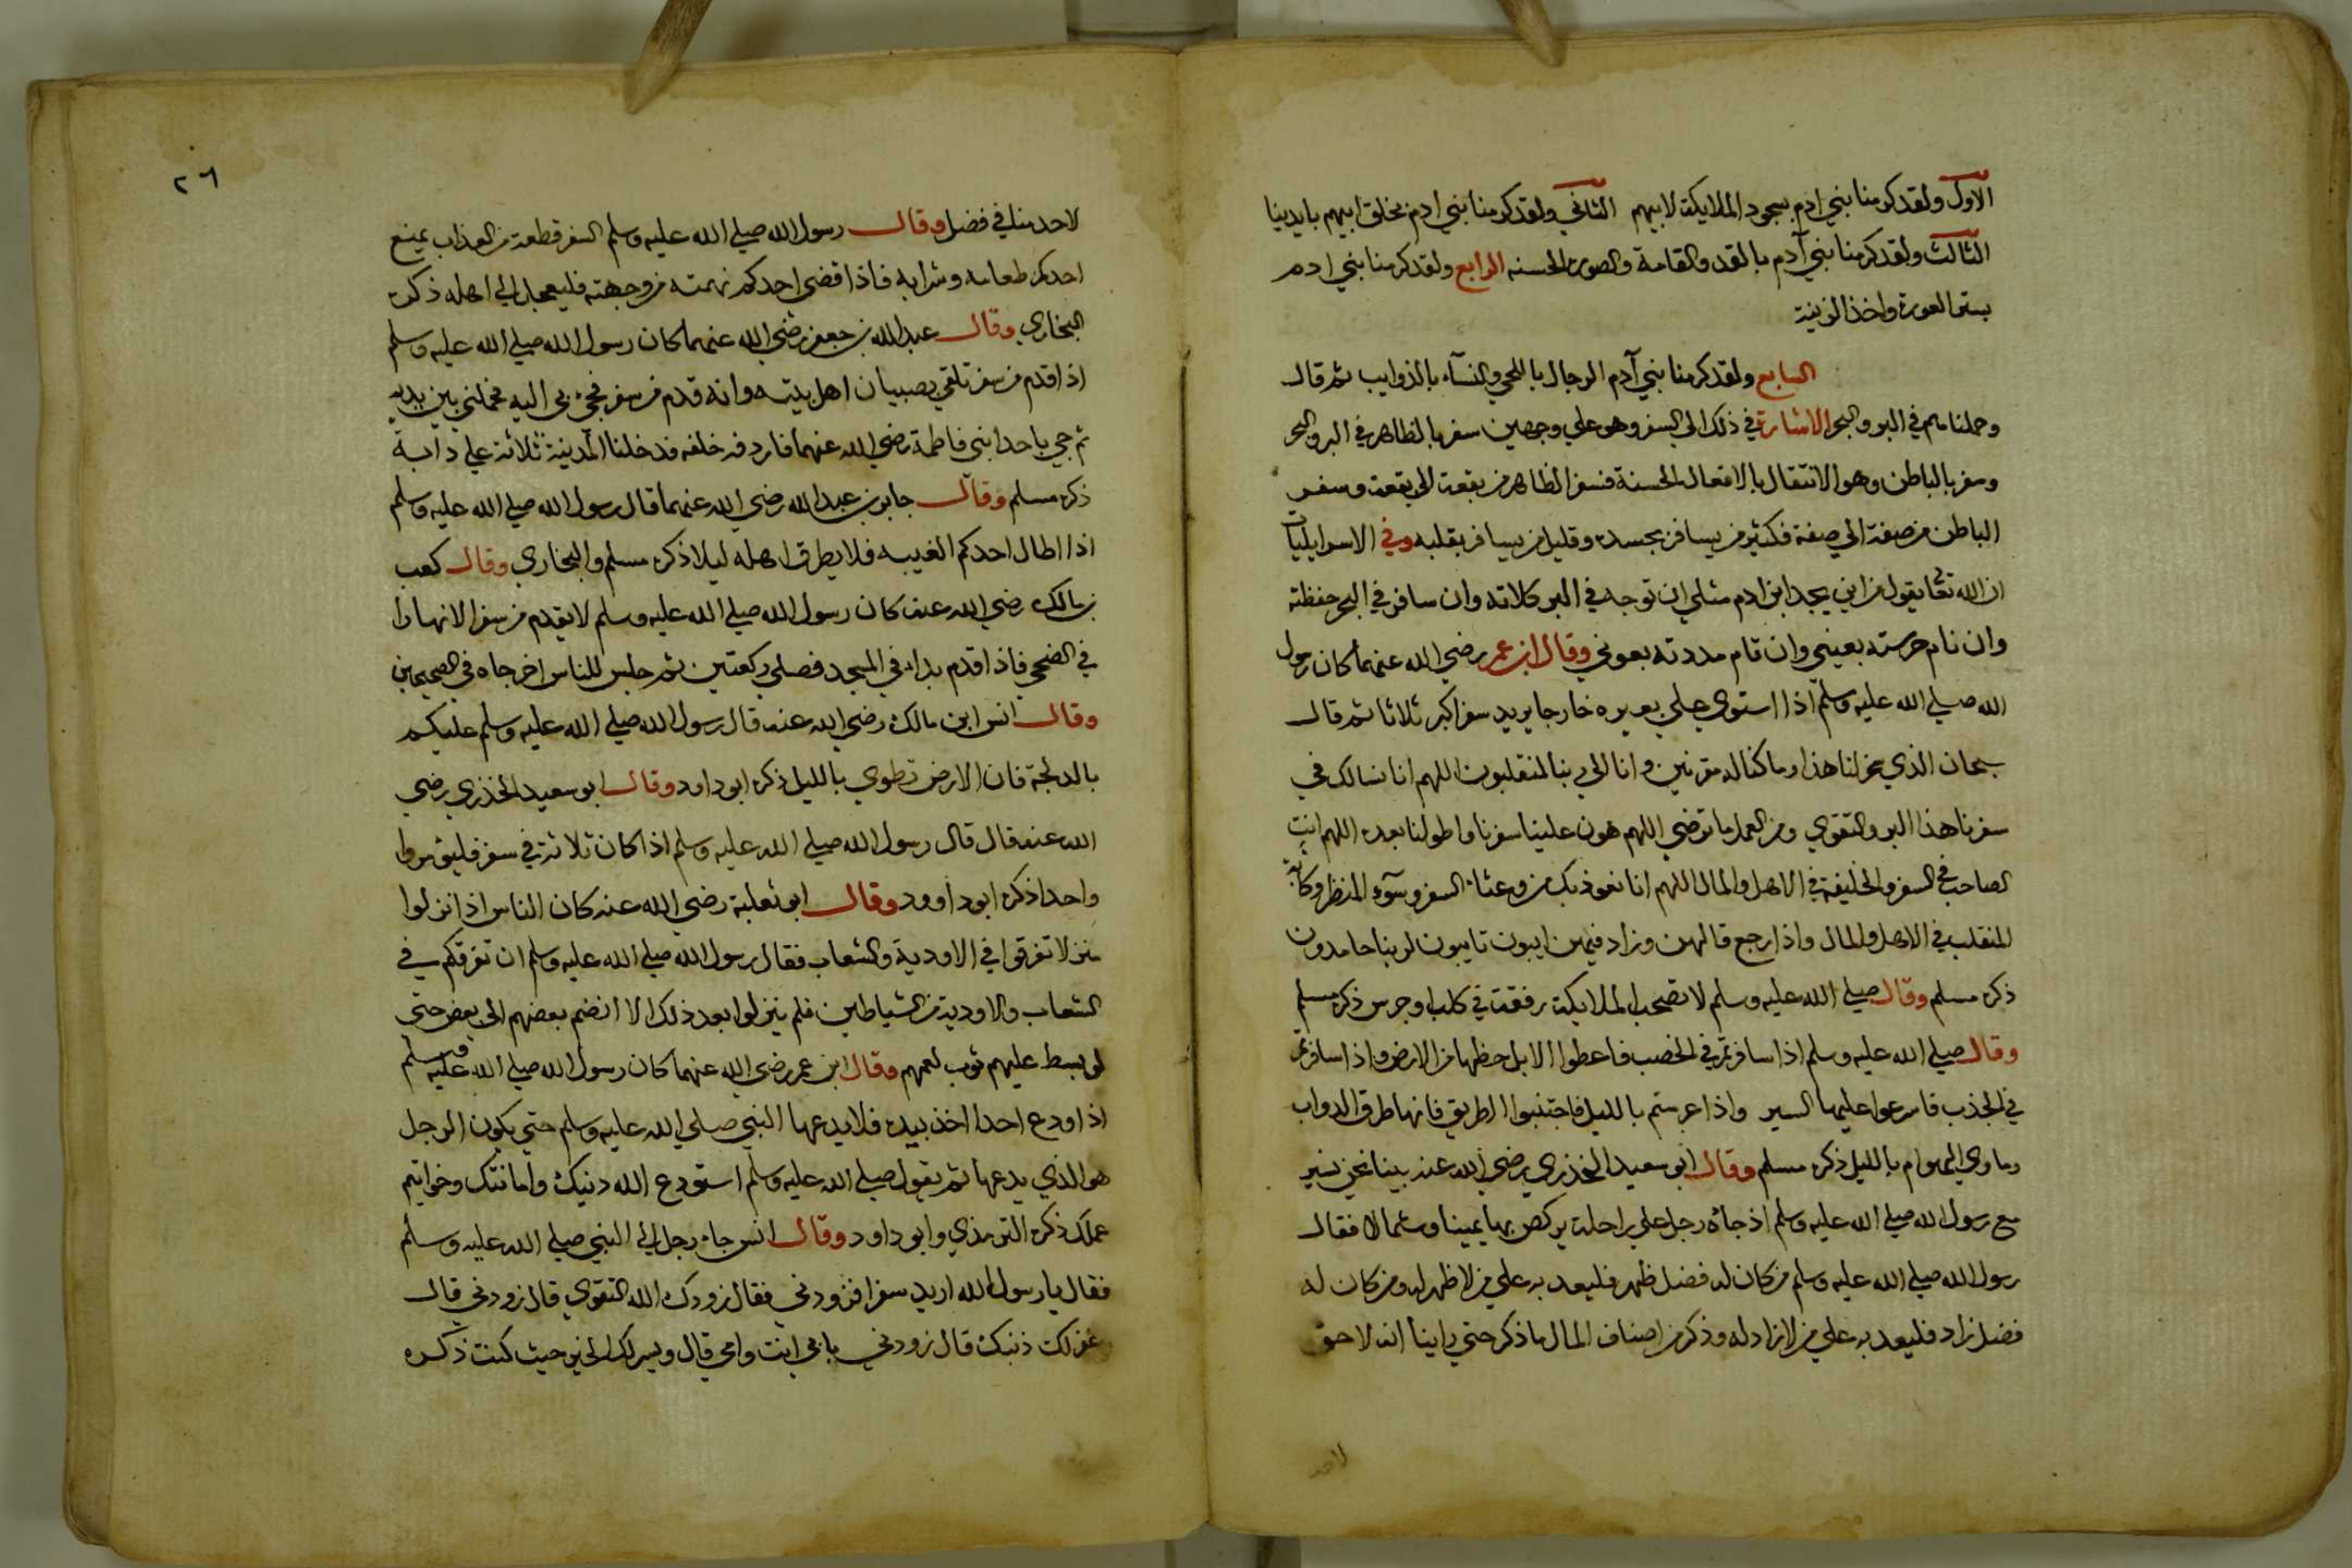 الاول ولقد كرمنا بني ادم بسجود الملايكة لابيهم الثاني ولقد كرمنا بني ادم بخلق ابيهم بايدينا
الثالث ولقد كرمنا بني آدم بالقد والقامة والصورة الحسنه الرابع ولقد كرمنا بني ادم
بستر العورة واخذ الزينة
السابع ولقد كرمنا بني آدم الرجال باللحي والنسآء بالذوايب ثم قال
وحملناهم في البر والبحر الاشارة في ذلك الي السفر وهو علي وجهين سفر بالظاهر في البر والبحر
وسفر بالباطن وهو الانتقال بالافعال الحسنة فسفر الظاهر من بقعة الي بقعة وسفر
الباطن من صفة الي صفة فكثير من يسافر بجسده وقليل من يسافر بقلبه وفي الاسرايليات
ان الله تعا يقول من اين يجد ابن ادم مثلي ان توجه في البر كلاته وان سافر في البحر حفظته
وان نام حرسته بعيني وان قام مددته بعوني وقال ابن عمر رضي الله عنهما كان رسول
الله صلي الله عليه وسلم اذا استوي علي بعيره خارجا يريد سفرا كبر ثلاثا ثم قال
سبحان الذي سخر لنا هذا وما كنا له مقرنين وانا الي ربنا لمنقلبون اللهم انا نسالك في
سفرنا هذا البر والتقوي ومن العمل ما ترضي اللهم هون علينا سفرنا واطو لنا بعده اللهم انت
الصاحب في السفر والخليفة في الاهل والمال اللهم انا نعوذ بك من وعثاء السفر وسوء المنظر وكآبة
المنقلب في الاهل والمال واذا رجع قالهن وزاد فيهن ايبون تايبون لربنا حامدون
ذكره مسلم وقال صلي الله عليه وسلم لا تصحب الملايكة رفقة في كلب او جرس ذكره مسلم
وقال صلي الله عليه وسلم اذا سافرتم في الخصب فاعطوا الابل حظها من الارض واذا سافرتم
في الجذب فاسرعوا عليها السير واذا عرستم بالليل فاجتنبوا الطريق فانها طرق الدواب
وماوي الهوام بالليل ذكره مسلم وقال ابو سعيد الخذري رضي الله عنه بينا نحن نسير
مع رسول الله صلي الله عليه وسلم اذ جاه رجل علي راحلة يركض بها يمينا وشمالا فقال
رسول الله صلي الله عليه وسلم من كان له فضل ظهر فليعد به علي من لا ظهر له ومن كان له
فضل زاد فليعد به علي من لا زاد له وذكر من اصناف المال ما ذكر حتي راينا انه لا حق
لاحد
٢٦
لاحد منا في فضل وقال رسول الله صلي الله عليه وسلم السفر قطعة من العذاب يمنع
احدكم طعامه وشرابه فاذا قضي احدكم نهمته من وجهته فليعجل الي اهله ذكره
البخاري وقال عبد الله بن جعفر رضي الله عنهما كان رسول الله صلي الله عليه وسلم
اذا قدم من سفر تلقي بصبيان اهل بيته وانه قدم من سفر فجيء بي اليه فحملني بين يديه
ثم جي باحد ابني فاطمة رضي الله عنهما فاردفه خلفه فدخلنا المدينة ثلاثة علي دابة
ذكره مسلم وقال جابر بن عبد الله رضي الله عنهما قال رسول الله صلي الله عليه وسلم
اذا اطال احدكم الغيبه فلا يطرق اهله ليلا ذكره مسلم والبخاري وقال كعب
بن مالك رضي الله عنه كان رسول الله صلي الله عليه وسلم لا يقدم من سفر الا نهارا
في الضحي فاذا قدم بداء في المسجد فصلي ركعتين ثم جلس للناس اخرجاه في الصحيحين
وقال انس ابن مالك رضي الله عنه قال رسول الله صلي الله عليه وسلم عليكم
بالدلجة فان الارض تطوي بالليل ذكره ابو داود وقال ابو سعيد الخذري رضي
الله عنه قال قال رسول الله صلي الله عليه وسلم اذا كان ثلاثة في سفر فليؤمروا
واحدا ذكره ابو داوود وقال ابو ثعلبة رضي الله عنه كان الناس اذا نزلوا
منزلا تفرقوا في الاودية والشعاب فقال رسول الله صلي الله عليه وسلم ان تفرقكم في
الشعاب والاودية من الشياطين فلم ينزلوا بعد ذلك الا انضم بعضهم الي بعض حتي
لو بسط عليهم ثوب لعمهم وقال ابن عمر رضي الله عنهما كان رسول الله صلي الله عليه وسلم
اذا ودع احدا اخذ بيده فلا يدعها النبي صلي الله عليه وسلم حتي يكون الرجل
هو الذي يدعها ثم يقول صلي الله عليه وسلم استودع الله دنيك وامانتك وخواتيم
عملك ذكره الترمذي وابو داود وقال انس جاء رجل الي النبي صلي الله عليه وسلم
فقال يا رسول الله اريد سفرا فزودني فقال زودك الله التقوي قال زودني قال
وغفر لك ذنبك قال زودني بابي انت وامي قال ويسر لك الخير حيث كنت ذكره